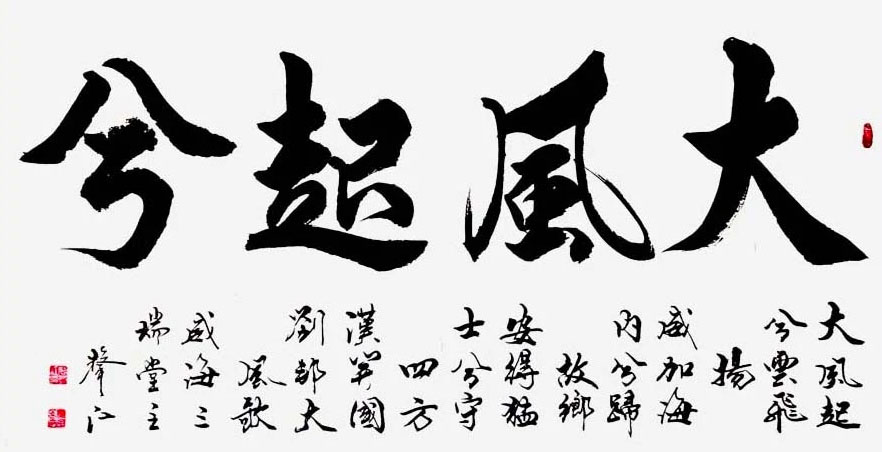 大風起兮
大風起
兮雲飛
揚
威加海
内兮歸
故鄉
安得猛
士兮守
四方
漢開國
劉邦大
風歌
威海三
瑞堂主
江